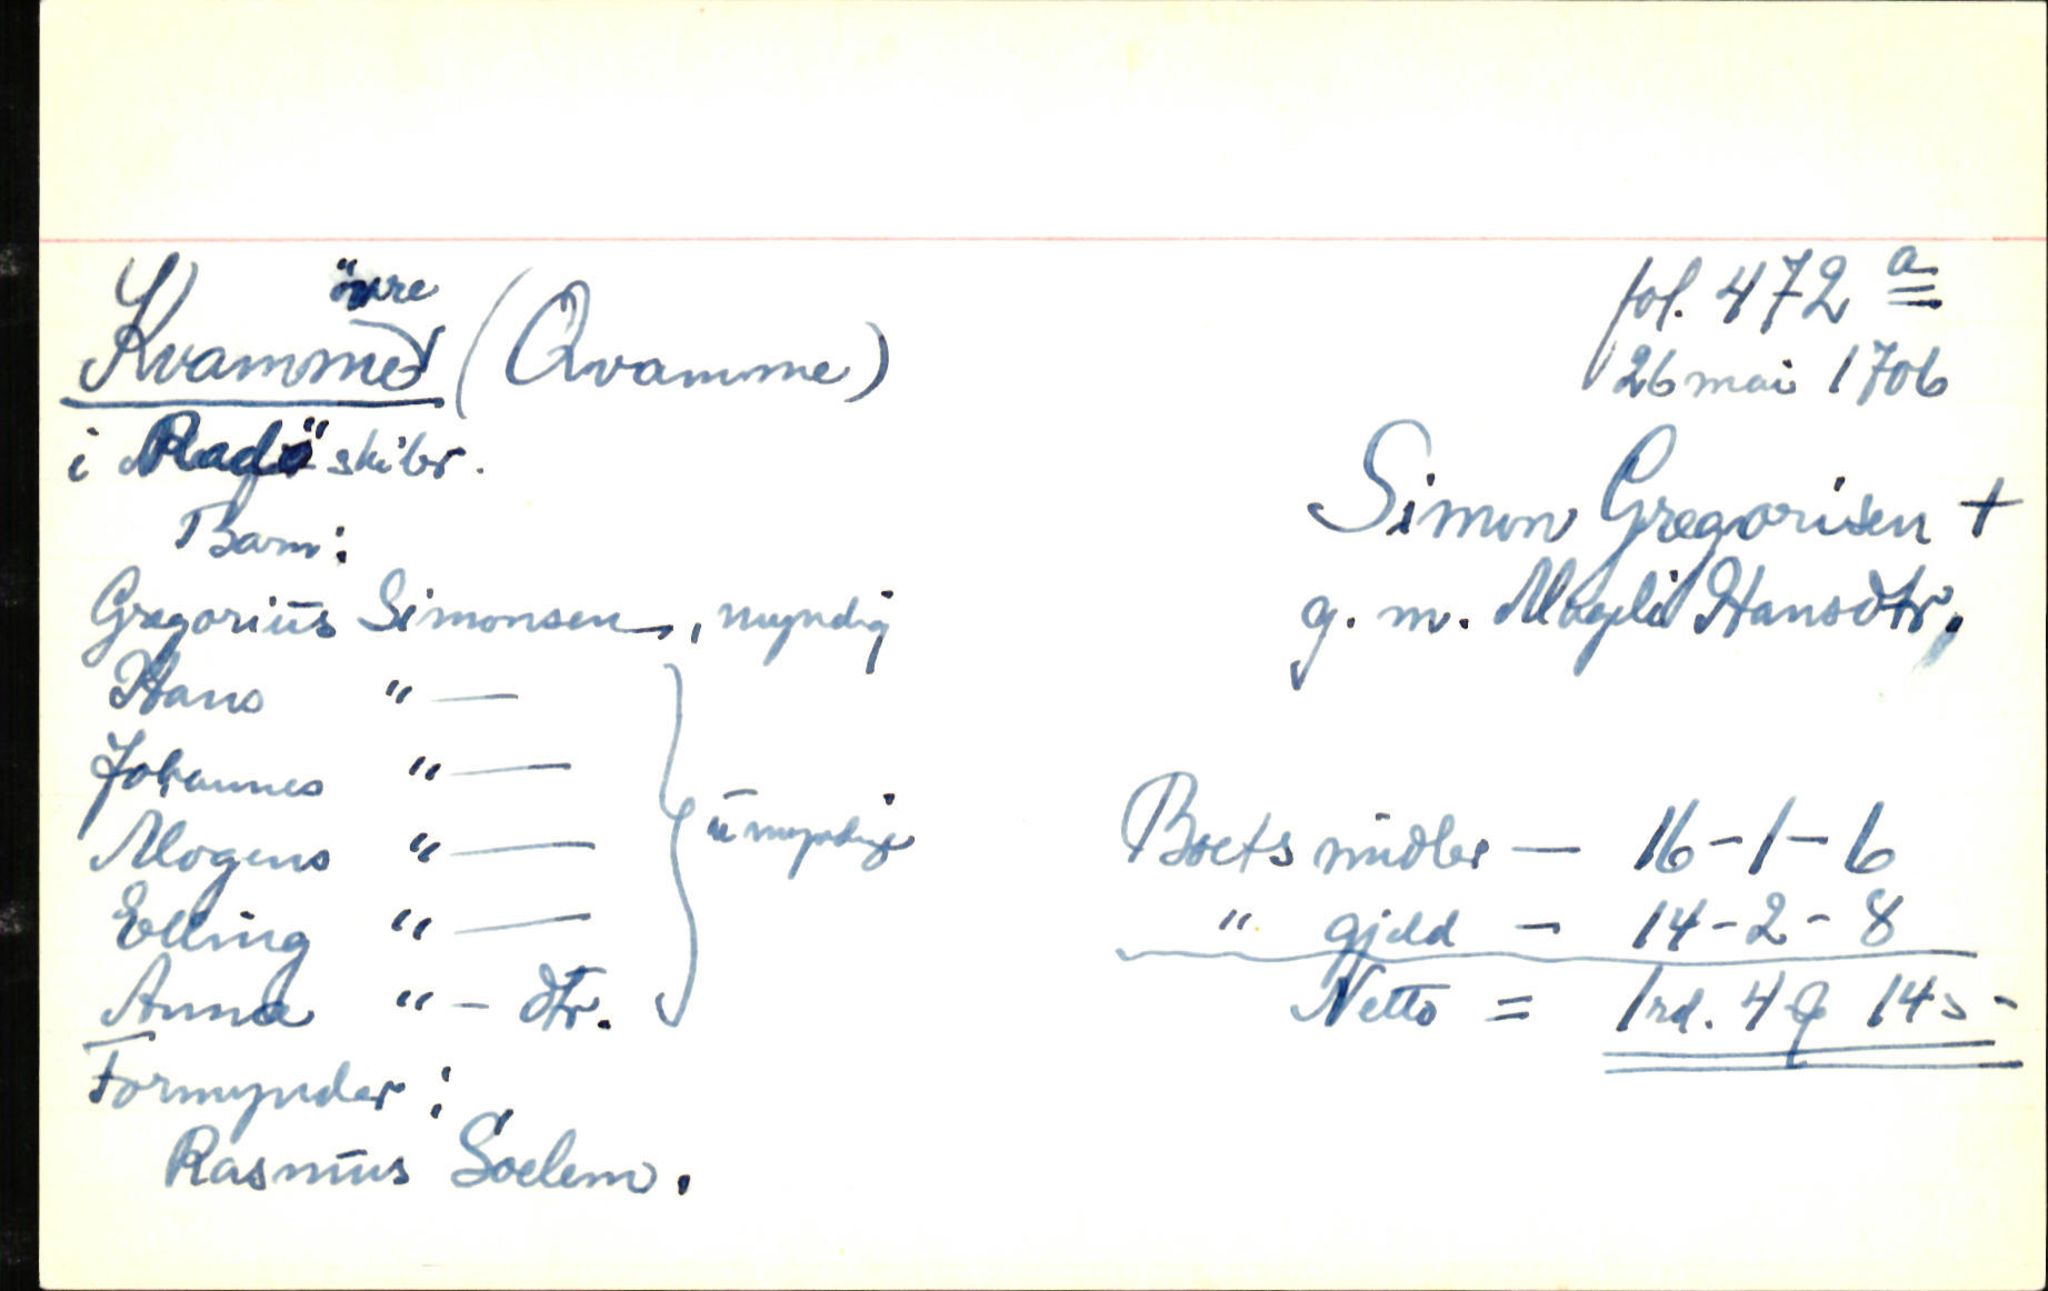 övre
Kvamme (Qvamme)
i Radö skibr.
Barn:
Gregorius Simonsen, myndig
Hans " —
Johannes " —
Mogens " —
Elling " —
Anna " - dtr.
umyndige
Formynder:
Rasmus Soelem.
fol. 472 a
26 mai 1706
Simon Gregorisen +
g. m. Magli Hansdtr,
Boets midler — 16-1-6
" gjeld - 14-2-8
Netto = 1 rd. 4 14 s -